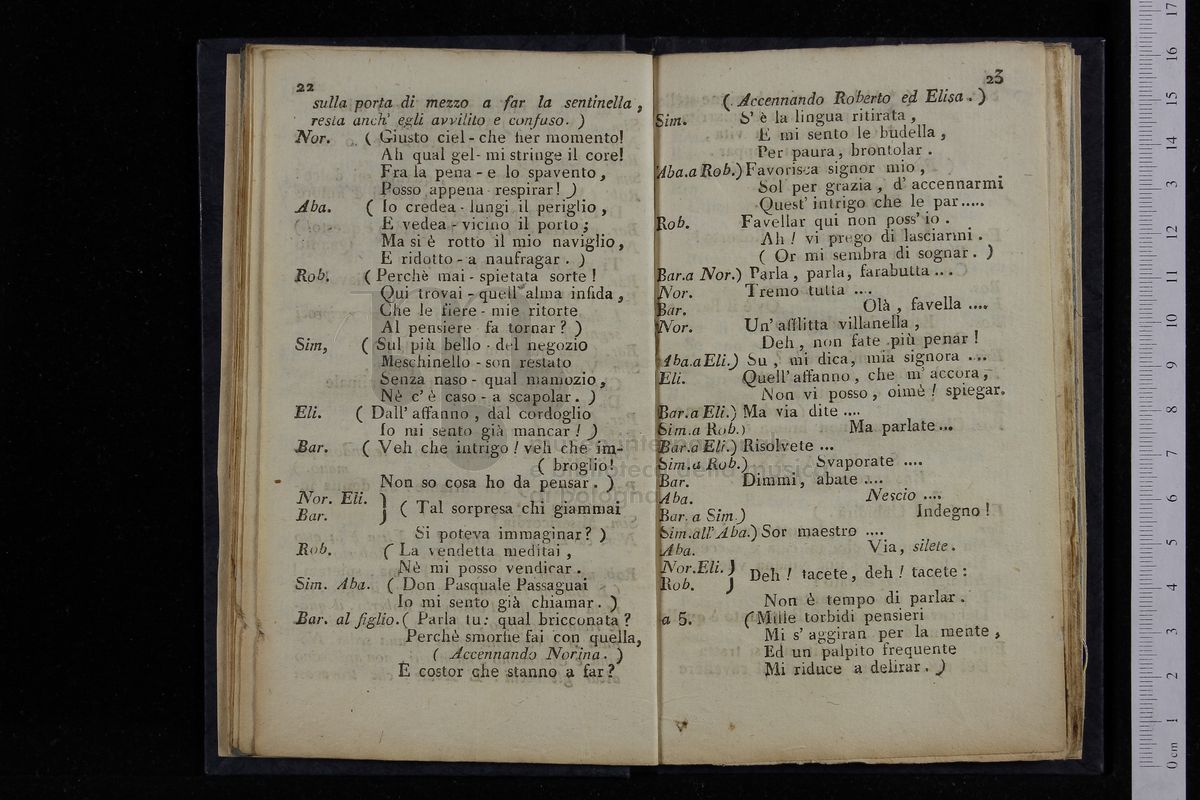 22
sulla porta di mezzo a far la sentinella,
resta anch' egli avvilito e confuso. )
Nor. ( Giusto ciel - che fier momento!
Ah qual gel - mi stringe il core!
Fra la pena - e lo spavento,
Posso appena respirar! )
Aba. ( Io credea - lungi il periglio,
E vedea - vicino il porto;
Ma si è rotto il mio naviglio,
E ridotto - a naufragar. )
Rob. ( Perchè mai - spietata sorte!
Qui trovai - quell' alma infida,
Che le fiere - mie ritorte
Al pensiere fa tornar? )
Sim, ( Sul più bello - del negozio
Meschinello - son restato
Senza naso - qual mamozio,
Nè c' è caso - a scapolar. )
Eli. ( Dall' affanno, dal cordoglio
Io mi sento già mancar! )
Bar. ( Veh che intrigo! veh che im-
( broglio!
Non so cosa ho da pensar. )
Nor. Eli.
Bar. } ( Tal sorpresa chi giammai
Si poteva immaginar? )
Rob. ( La vendetta meditai,
Nè mi posso vendicar.
Sim. Aba. ( Don Pasquale Passaguai
Io mi sento già chiamar. )
Bar. al figlio. ( Parla tu: qual bricconata?
Perchè smorfie fai con quella,
( Accennando Norina. )
E costor che stanno a far?
23
( Accennando Roberto ed Elisa. )
Sim. S' è la lingua ritirata,
E mi sento le budella,
Per paura, brontolar.
Aba.a Rob.) Favorisca signor mio,
Sol per grazia, d' accennarmi
Quest' intrigo che le par.....
Rob. Favellar qui non poss' io.
Ah! vi prego di lasciarmi.
( Or mi sembra di sognar. )
Bar.a Nor.) Parla, parla, farabutta ...
Nor. Tremo tutta ....
Bar. Olà, favella ....
Nor. Un' afflitta villanella,
Deh, non fate più penar!
Aba.a Eli.) Su, mi dica, mia signora ....
Eli. Quell' affanno, che m' accora,
Non vi posso, oimè! spiegar.
Bar.a Eli.) Ma via dite ....
Sim.a Rob.) Ma parlate...
Bar.a Eli.) Risolvete ...
Sim.a Rob.) Svaporate ....
Bar. Dimmi, abate ....
Aba. Nescio ....
Bar. a Sim.) Indegno!
Sim.all' Aba.) Sor maestro ....
Aba. Via, silete.
Nor.Eli. }
Rob. } Deh! tacete, deh! tacete:
Non è tempo di parlar.
a 5. ( Mille torbidi pensieri
Mi s' aggiran per la mente,
Ed un palpito frequente
Mi riduce a delirar. )
0 cm 1 2 3 4 5 6 7 8 9 10 11 12 13 14 15 16 17